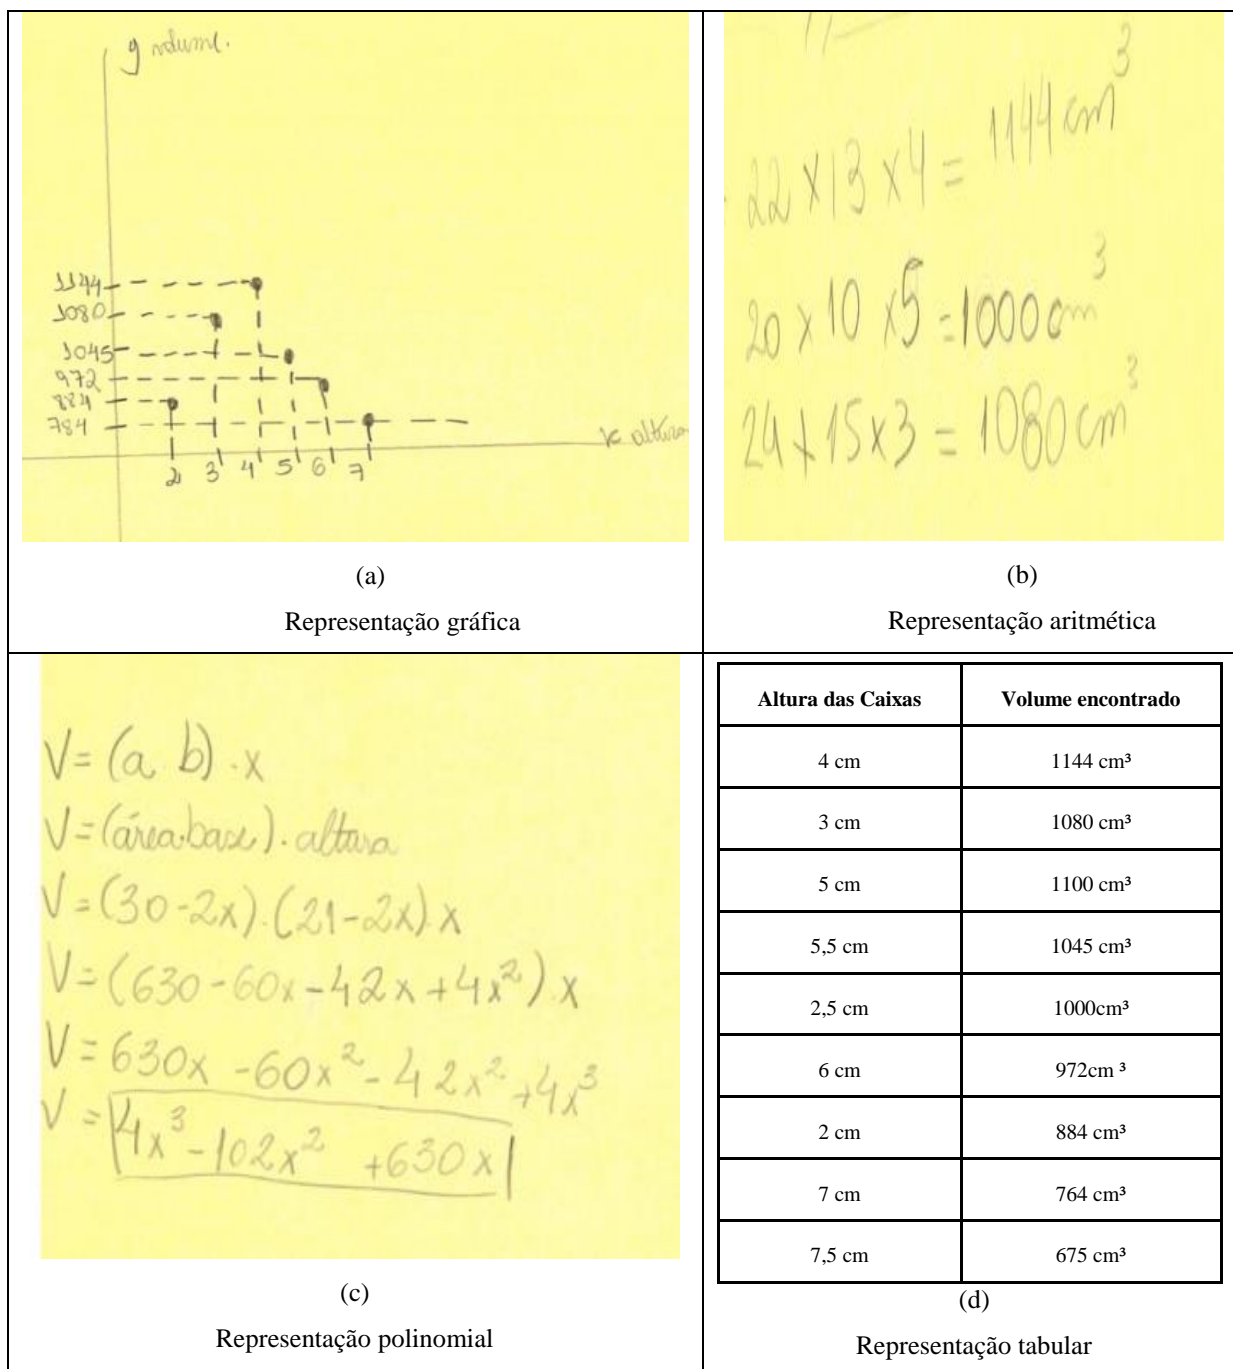 y volume.
1144
1080
1045
972
884
784
x altura
2 3 4 5 6 7
(a)
Representação gráfica
22 x 13 x 4 = 1144 cm³
20 x 10 x 5 = 1000 cm³
24 x 15 x 3 = 1080 cm³
(b)
Representação aritmética
V = (a b) . x
V = (área.base) . altura
V = (30 - 2x) . (21 - 2x) . x
V = (630 - 60x - 42x + 4x²) . x
V = 630x - 60x² - 42x² + 4x³
V = 4x³ - 102x² + 630x
(c)
Representação polinomial
Altura das Caixas Volume encontrado
4 cm 1144 cm³
3 cm 1080 cm³
5 cm 1100 cm³
5,5 cm 1045 cm³
2,5 cm 1000cm³
6 cm 972cm ³
2 cm 884 cm³
7 cm 764 cm³
7,5 cm 675 cm³
(d)
Representação tabular